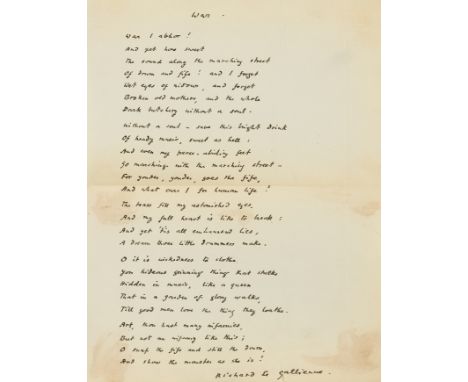 War –
War I abhor!
And yet how sweet
The sound along the marching street
Of drum and fife! and I forget
Wet eyes of widows, and forget
Broken old mothers, and the whole
Dark butchery without a soul.
Without a soul – save this bright drink
Of heady music, sweet as hell;
And even my peace-abiding feet
Go marching with the marching street –
For yonder, yonder, goes the fife,
And what care I for human life!
The tears fill my astonished eyes,
And my full heart is like to break;
And yet 'tis all embannered lies,
A dream those little drummers make.
O it is wickedness to clothe
Yon hideous grinning thing that stalks
Hidden in music, like a queen
That in a garden of glory walks,
Till good men love the thing they loathe.
Art, thou hast many infamies,
But not an infamy like this;
O snap the fife and still the drum,
And show the monster as she is!
Richard Le Gallienne.